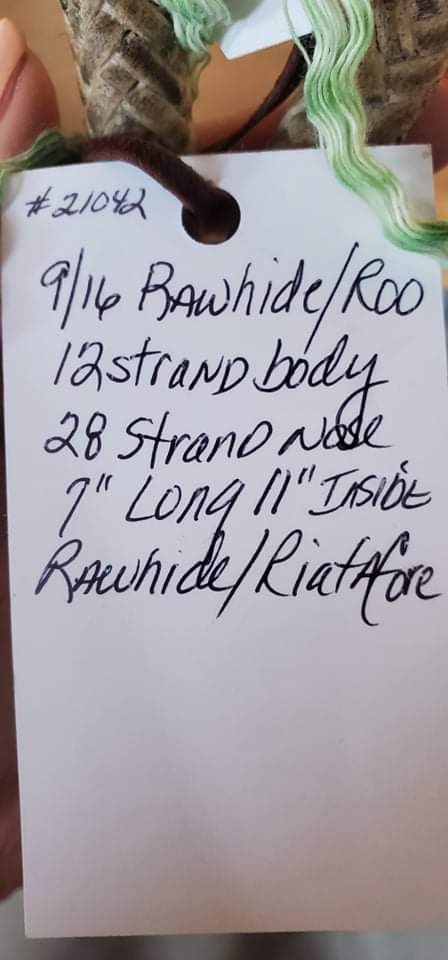 #21042
9/16 Rawhide/Roo
12 strand body
28 Strand Nose
7" Long 11" Inside
Rawhide/Riata Core